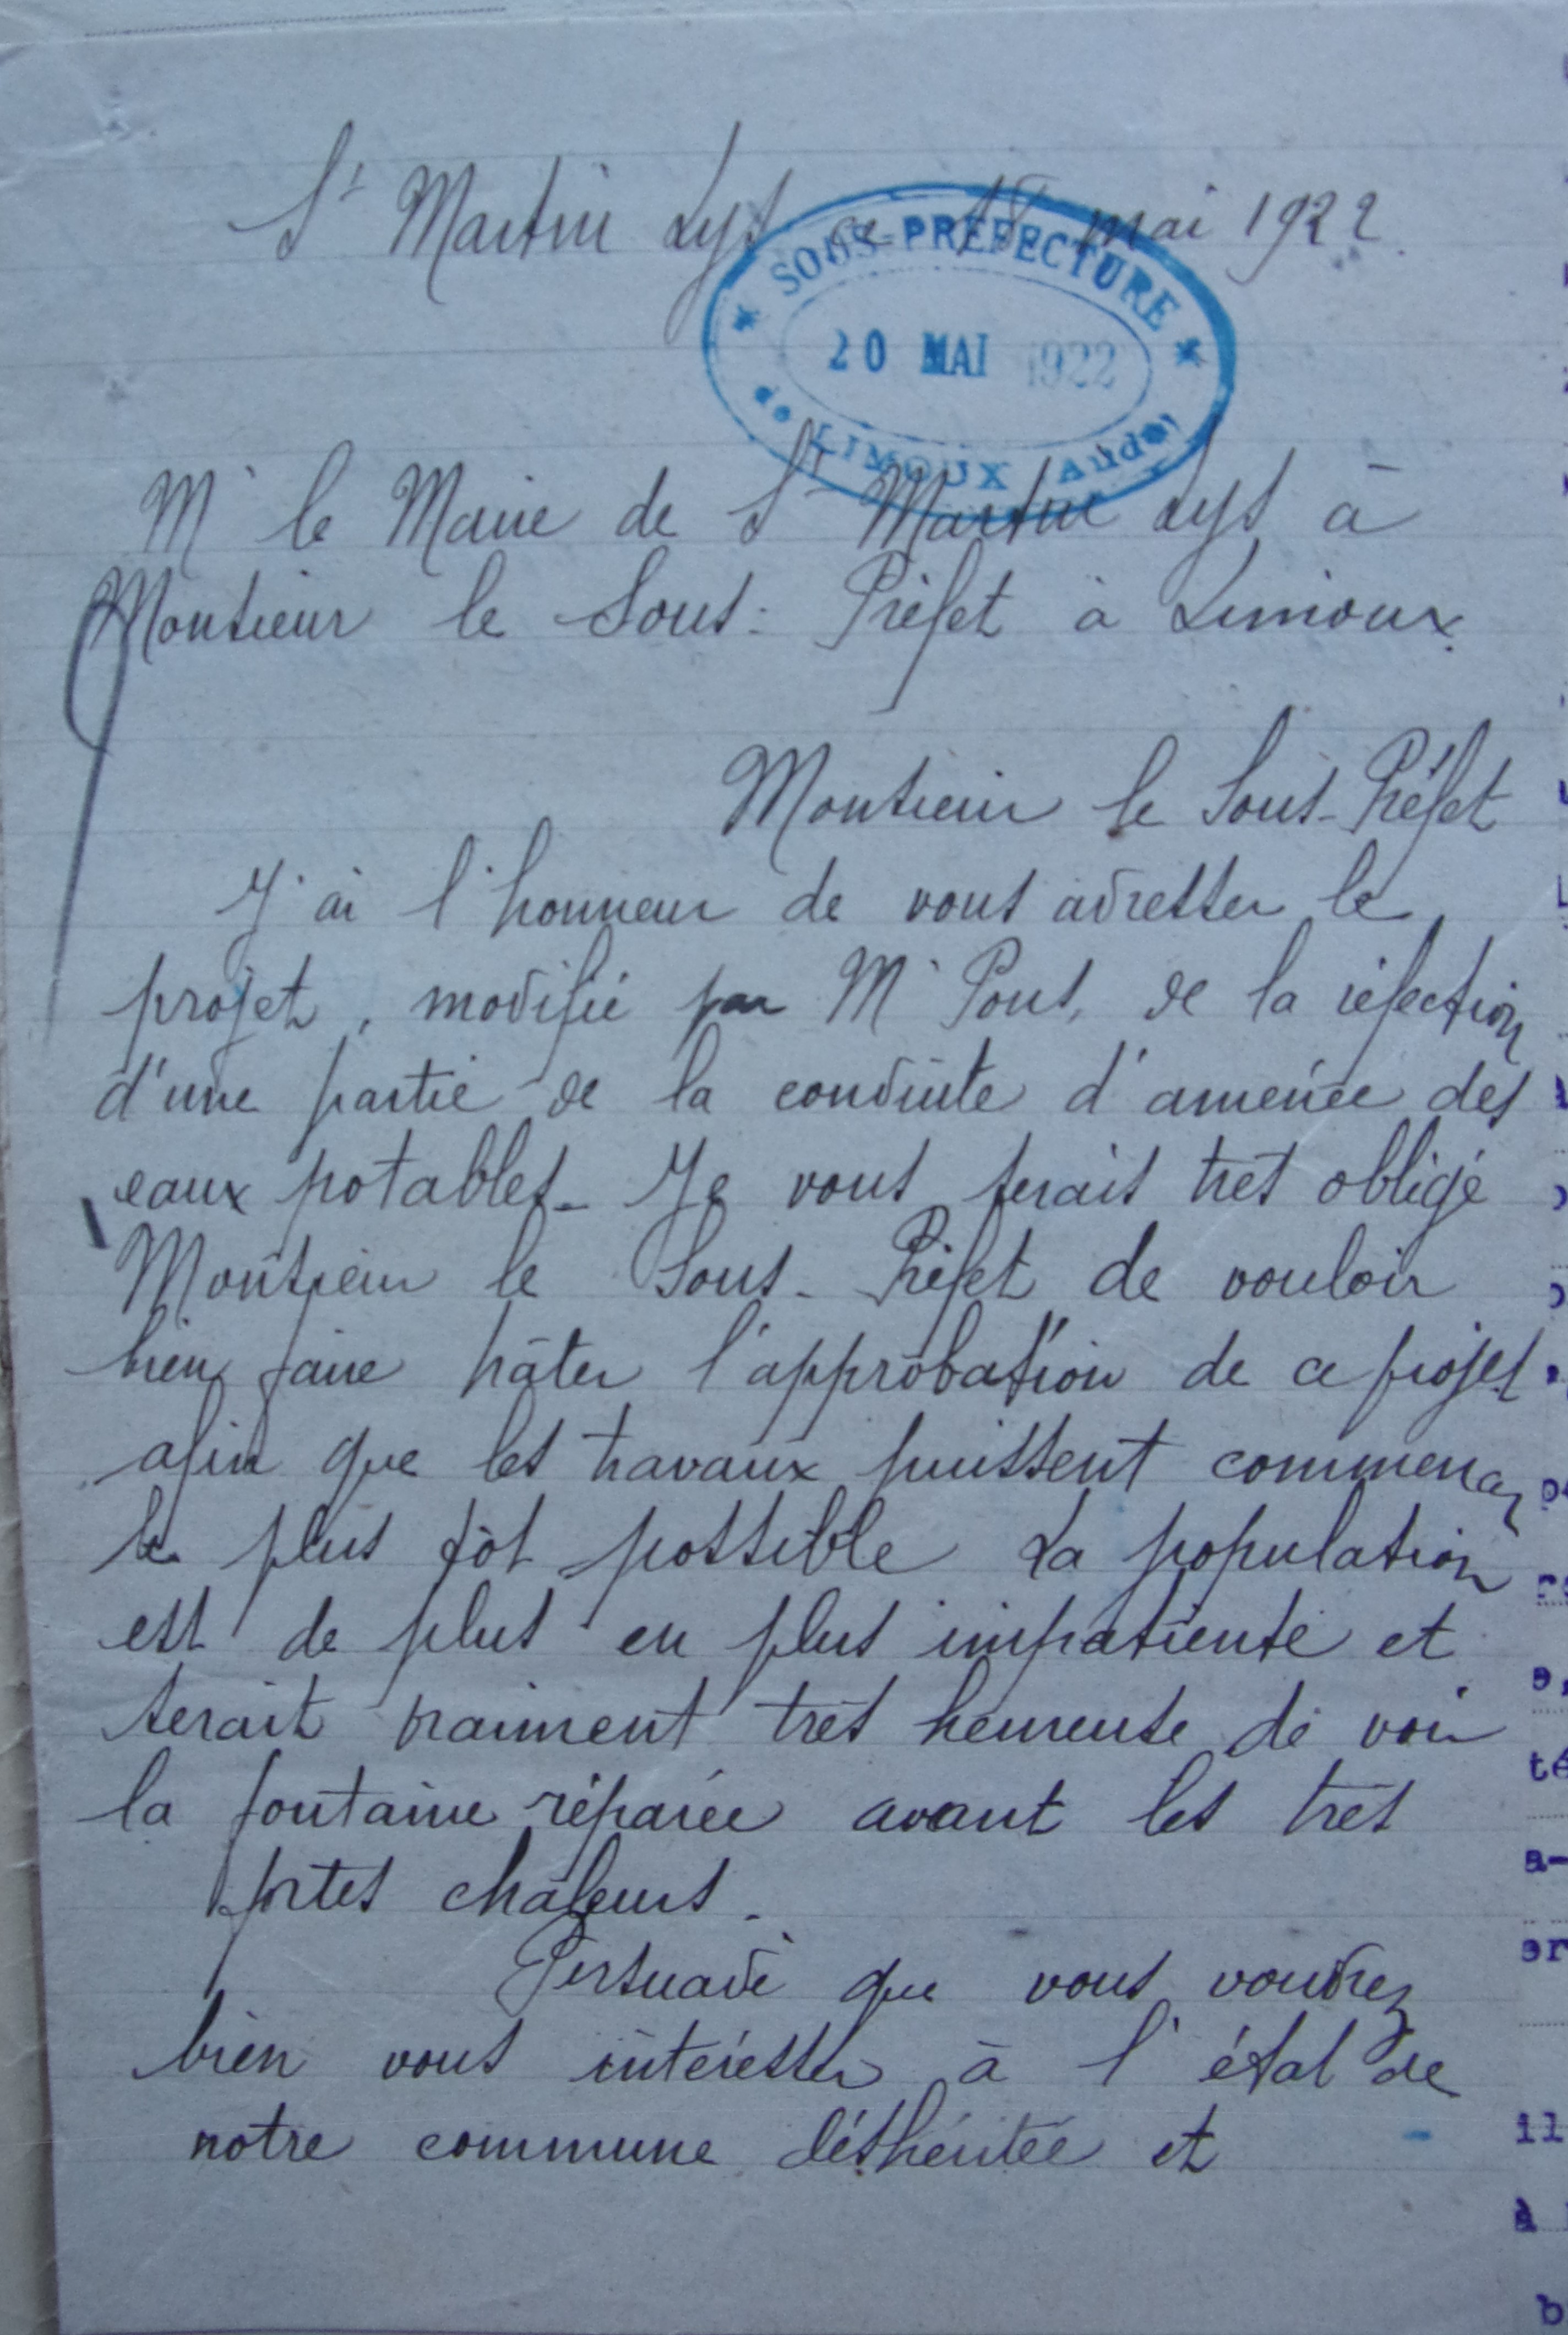 St Martin Lys ce 18 mai 1922.
* SOUS-PRÉFECTURE *
20 MAI 1922
de LIMOUX (Aude)
Mr le Maire de St Martin Lys à
Monsieur le Sous-Préfet à Limoux.
Monsieur le Sous-Préfet
J'ai l'honneur de vous adresser le
projet, modifié par Mr Pons, de la réfection
d'une partie de la conduite d'amenée des
eaux potables_ Je vous serais très obligé
Monsieur le Sous-Préfet de vouloir
bien faire hâter l'approbation de ce projet
afin que les travaux puissent commencer
le plus tôt possible La population
est de plus en plus impatiente et
serait vraiment très heureuse de voir
la fontaine réparée avant les très
fortes chaleurs.
Persuadé que vous voudrez
bien vous intéresser à l'état de
notre commune déshéritée et